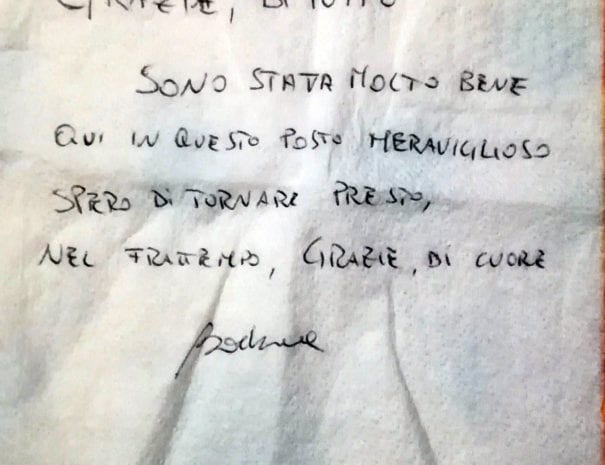 GRAZIE, DI TUTTO
SONO STATA MOLTO BENE
QUI IN QUESTO POSTO MERAVIGLIOSO
SPERO DI TORNARE PRESTO,
NEL FRATTEMPO, GRAZIE, DI CUORE